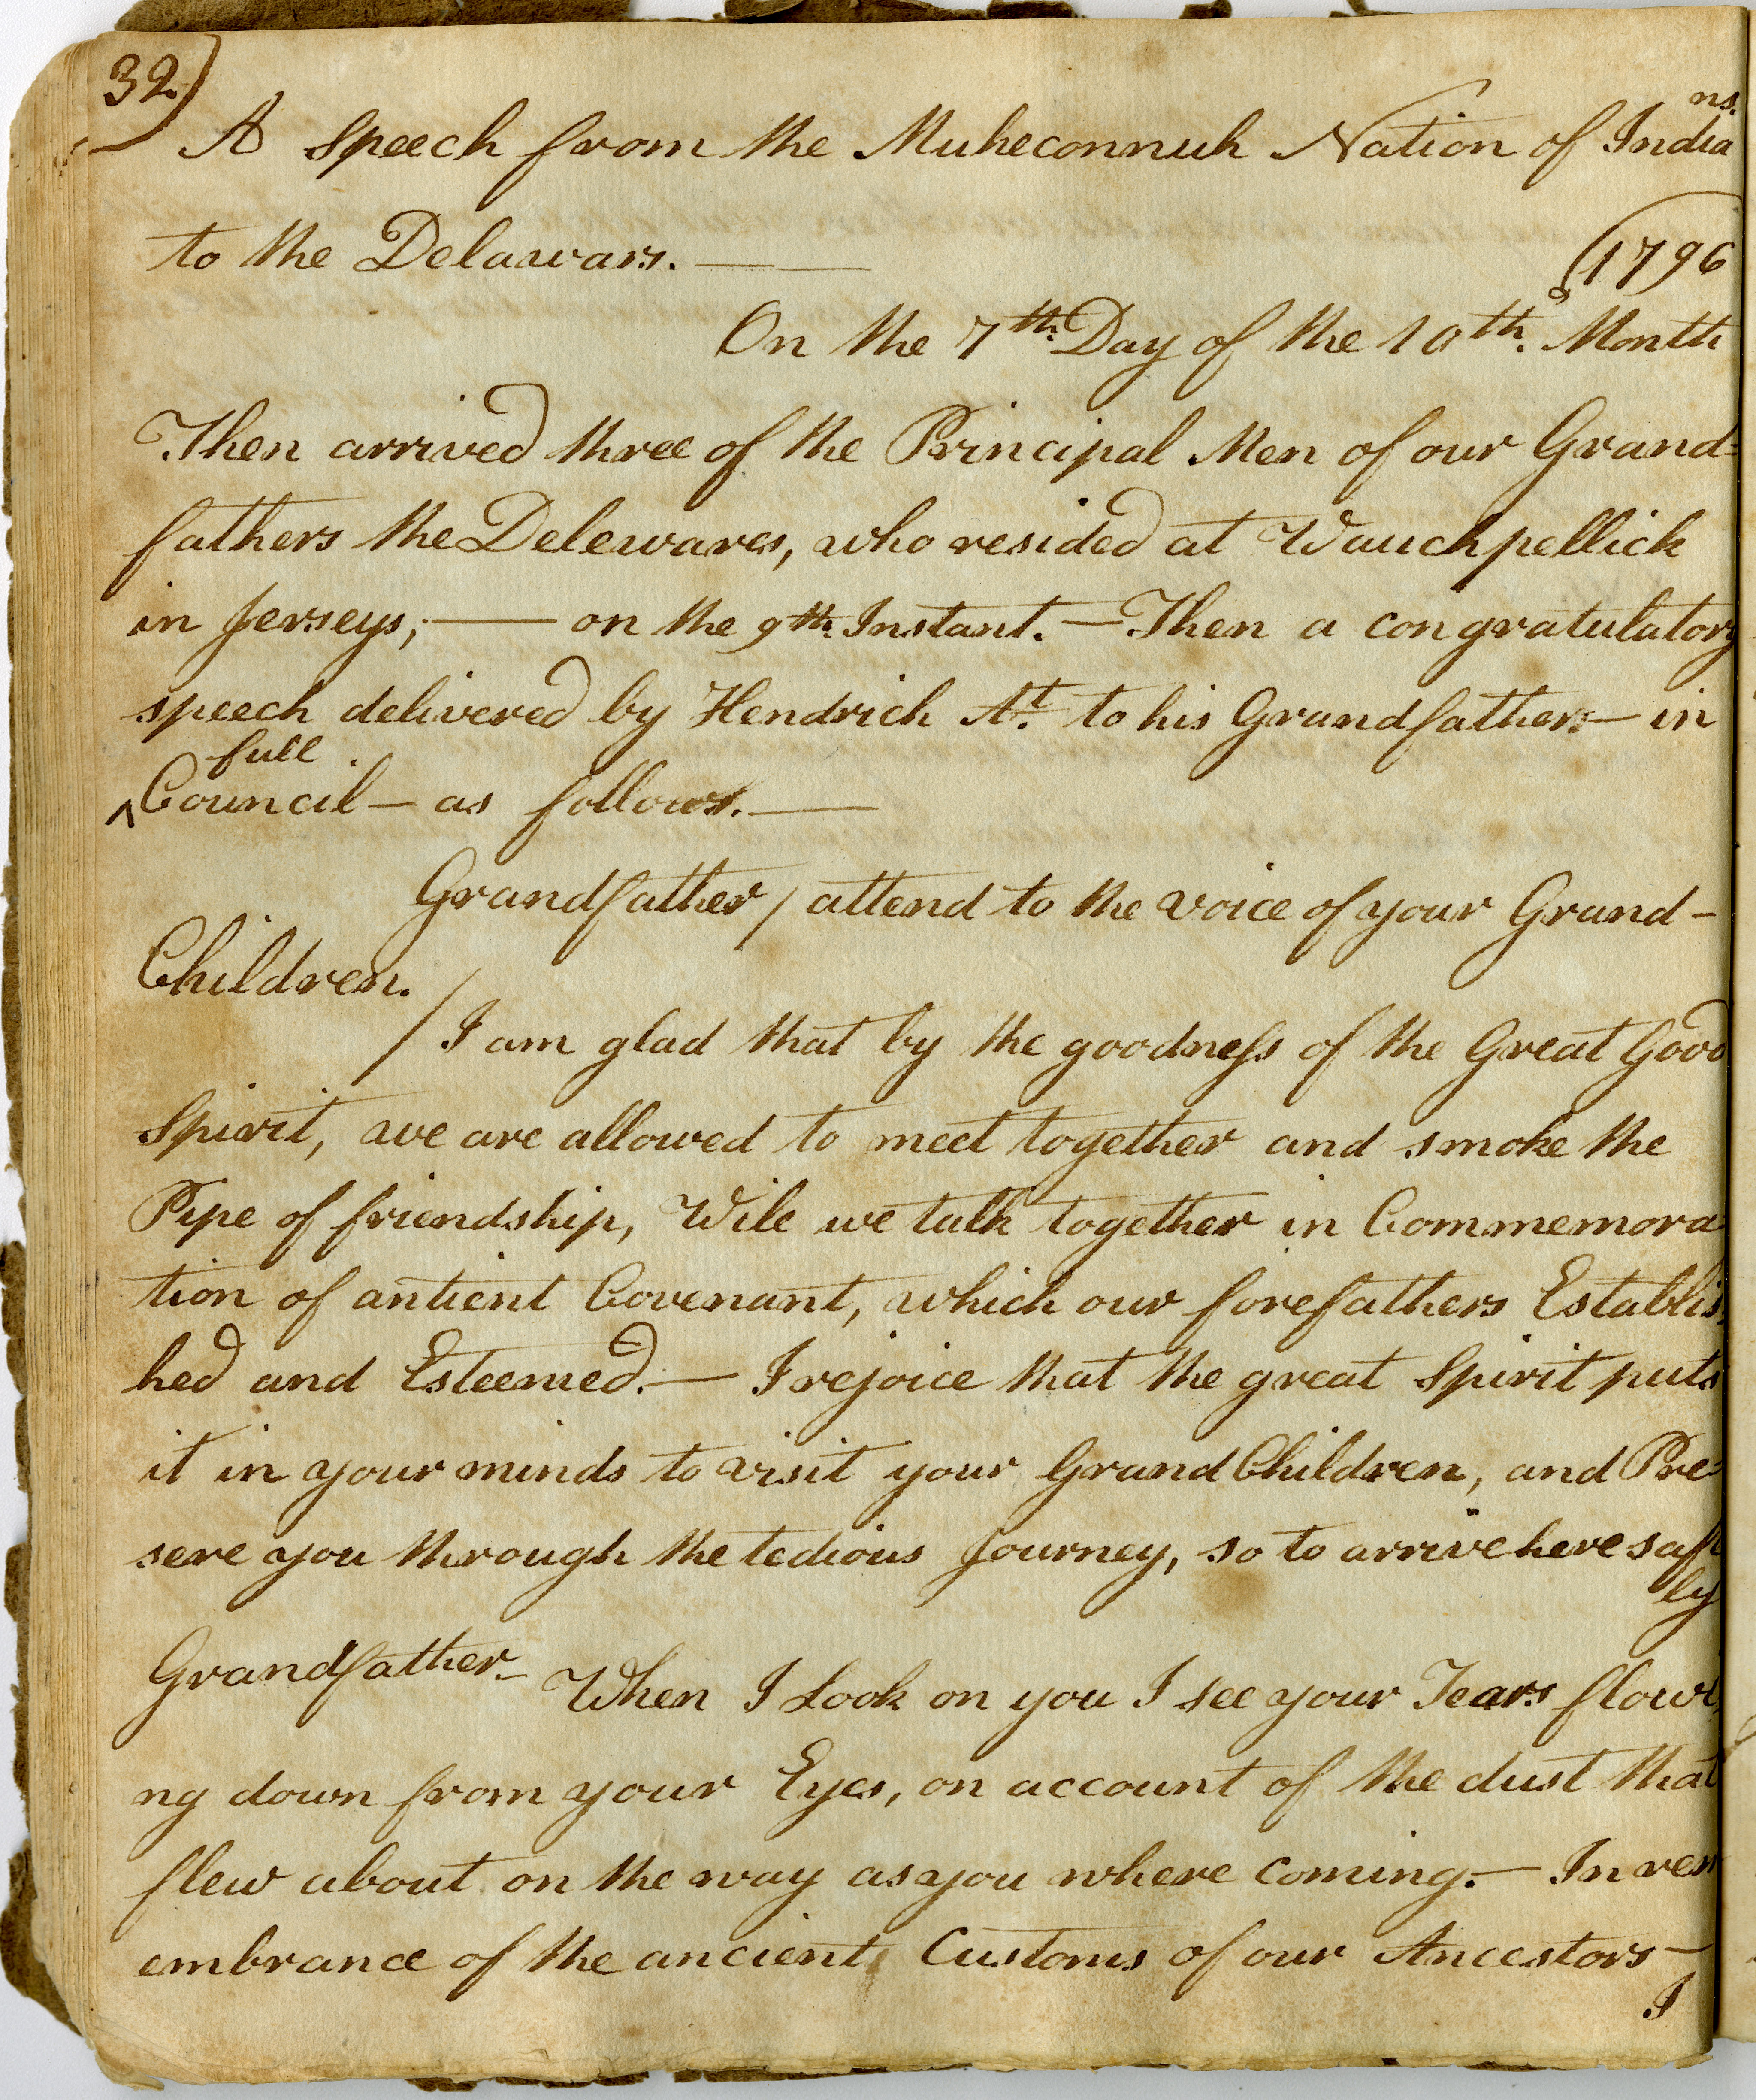 32.)
A Speech from the Muheconnuk Nation of Indians.
to the Delawars. ——
(1796
On the 7th. Day of the 10th. Month
Then arrived three of the Principal Men of our Grand=
fathers the Delewares, who resided at Wauchpellick
in Jerseys; — on the 9th. Instant. — Then a congratulatory
speech delivered by Hendrick At. to his Grandfathers — in
^full Council — as follows. —
Grandfather / attend to the voice of your Grand-
Children.
/ I am glad that by the goodness of the Great Good
Spirit, we are allowed to meet together and smoke the
Pipe of friendship, Wile we talk together in Commemora
tion of antient Covenant, which our forefathers Establis
hed and Esteemed. — I rejoice that the great Spirit puts
it in your minds to visit your Grand Children, and Pre=
sere you through the tedious Journey, so to arrive here safe
ly
Grandfather — When I Look on you I see your Tears flowi
ng down from your Eyes, on account of the dust that
flew about on the way as you where coming. — In rem
embrance of the ancient Customs of our Ancestors —
I